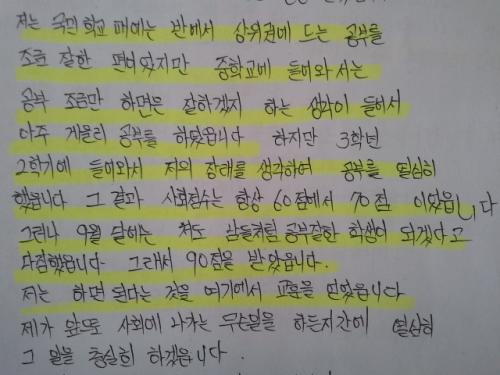 저는 국민학교 때에는 반에서 상위권에 드는 공부를
조금 잘한 편이었지만 중학교에 들어와서는
공부 조금만 하면은 잘하겠지 하는 생각이 들어서
아주 게을리 공부를 하였읍니다 하지만 3학년
2학기에 들어와서 저의 장래를 생각하여 공부를 열심히
했읍니다 그 결과 사회점수는 항상 60점에서 70점 이었읍니다
그러나 9월 달에는 저도 남들처럼 공부잘한 학생이 되겠다고
다짐했읍니다. 그래서 90점을 받았읍니다.
저는 하면 된다는 것을 여기에서 교훈을 얻었읍니다
제가 앞으로 사회에 나가는 무슨일을 하든지간에 열심히
그 일을 충실히 하겠읍니다.